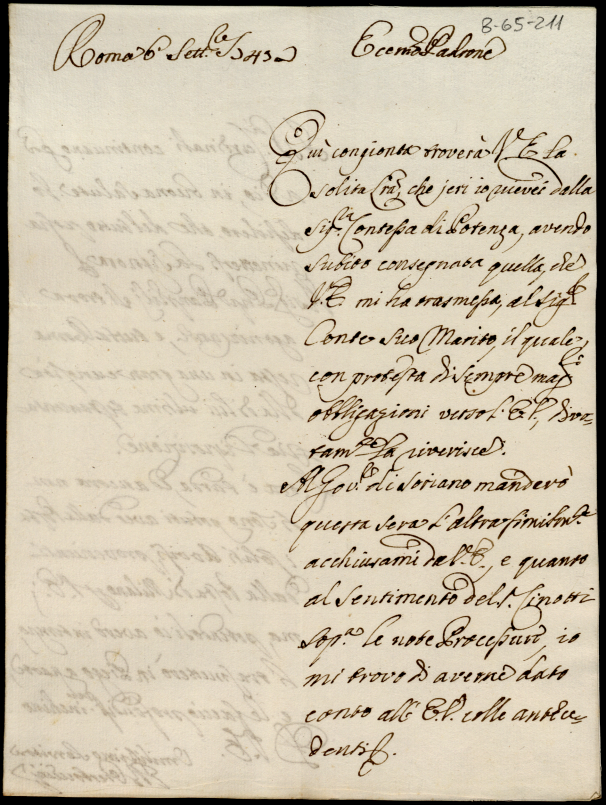 8-65-211
Roma 6 Sett.re 1743
Ecc.mo Padrone
Quì congionta troverà V.E. la
solita l'ra, che jeri io ricevei dalla
Sig.ra Contessa di Potenza, avendo
subito consegnata quella, che
V.E. mi ha trasmessa, al Sig.r
Conte suo Marito, il quale,
con protesta di sempre mag.ri
obbligazioni verso l'E.V., divo-
tam.te la riverisce.
Al Gov.re di Soriano manderò
questa sera l'altra simitm.te
acchiusami da V.E., e quanto
al sentimento del S.r Cinotti
sop.a le note Procepure, io
mi trovo di averne dato
conto all' E.V. colle antece-
denti.